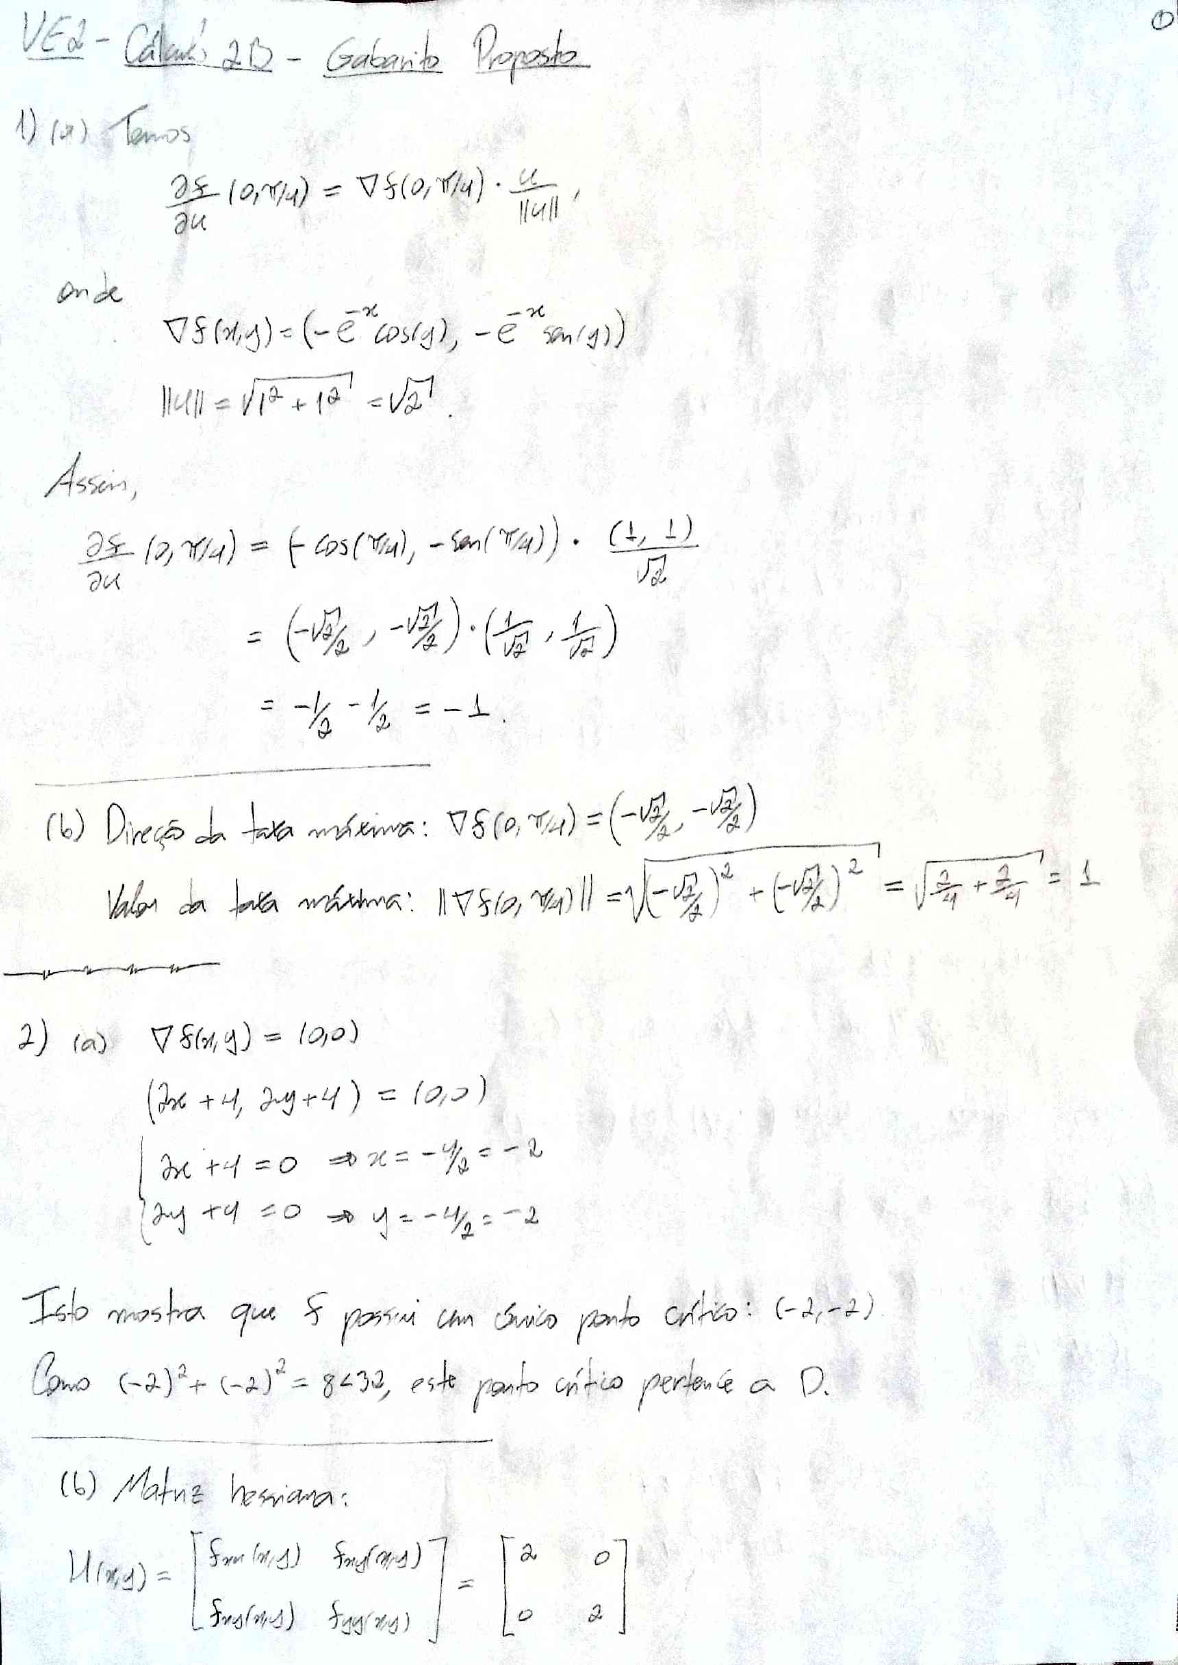 ①
VE2 - Cálculo 2B - Gabarito Proposto
1) (a) Temos
∂f/∂u (0, π/4) = ∇f(0, π/4) · u/||u|| ,
onde
∇f(x,y) = (-e^-x cos(y), -e^-x sen(y))
||u|| = √(1² + 1²) = √2 .
Assim,
∂f/∂u (0, π/4) = (-cos(π/4), -sen(π/4)) · (1, 1)/√2
= (-√2/2 , -√2/2) · (1/√2 , 1/√2)
= -1/2 - 1/2 = -1 .
(b) Direção da taxa máxima: ∇f(0, π/4) = (-√2/2, -√2/2)
Valor da taxa máxima: ||∇f(0, π/4)|| = √((-√2/2)² + (-√2/2)²) = √(2/4 + 2/4) = 1
2) (a) ∇f(x,y) = (0,0)
(2x + 4, 2y + 4) = (0,0)
{ 2x + 4 = 0 ⇒ x = -4/2 = -2
2y + 4 = 0 ⇒ y = -4/2 = -2
Isto mostra que f possui um único ponto crítico: (-2,-2)
Como (-2)² + (-2)² = 8 < 32, este ponto crítico pertence a D.
(b) Matriz hessiana:
H(x,y) = [ fxx(x,y) fxy(x,y) ] = [ 2 0 ]
[ fxy(x,y) fyy(x,y) ] [ 0 2 ]